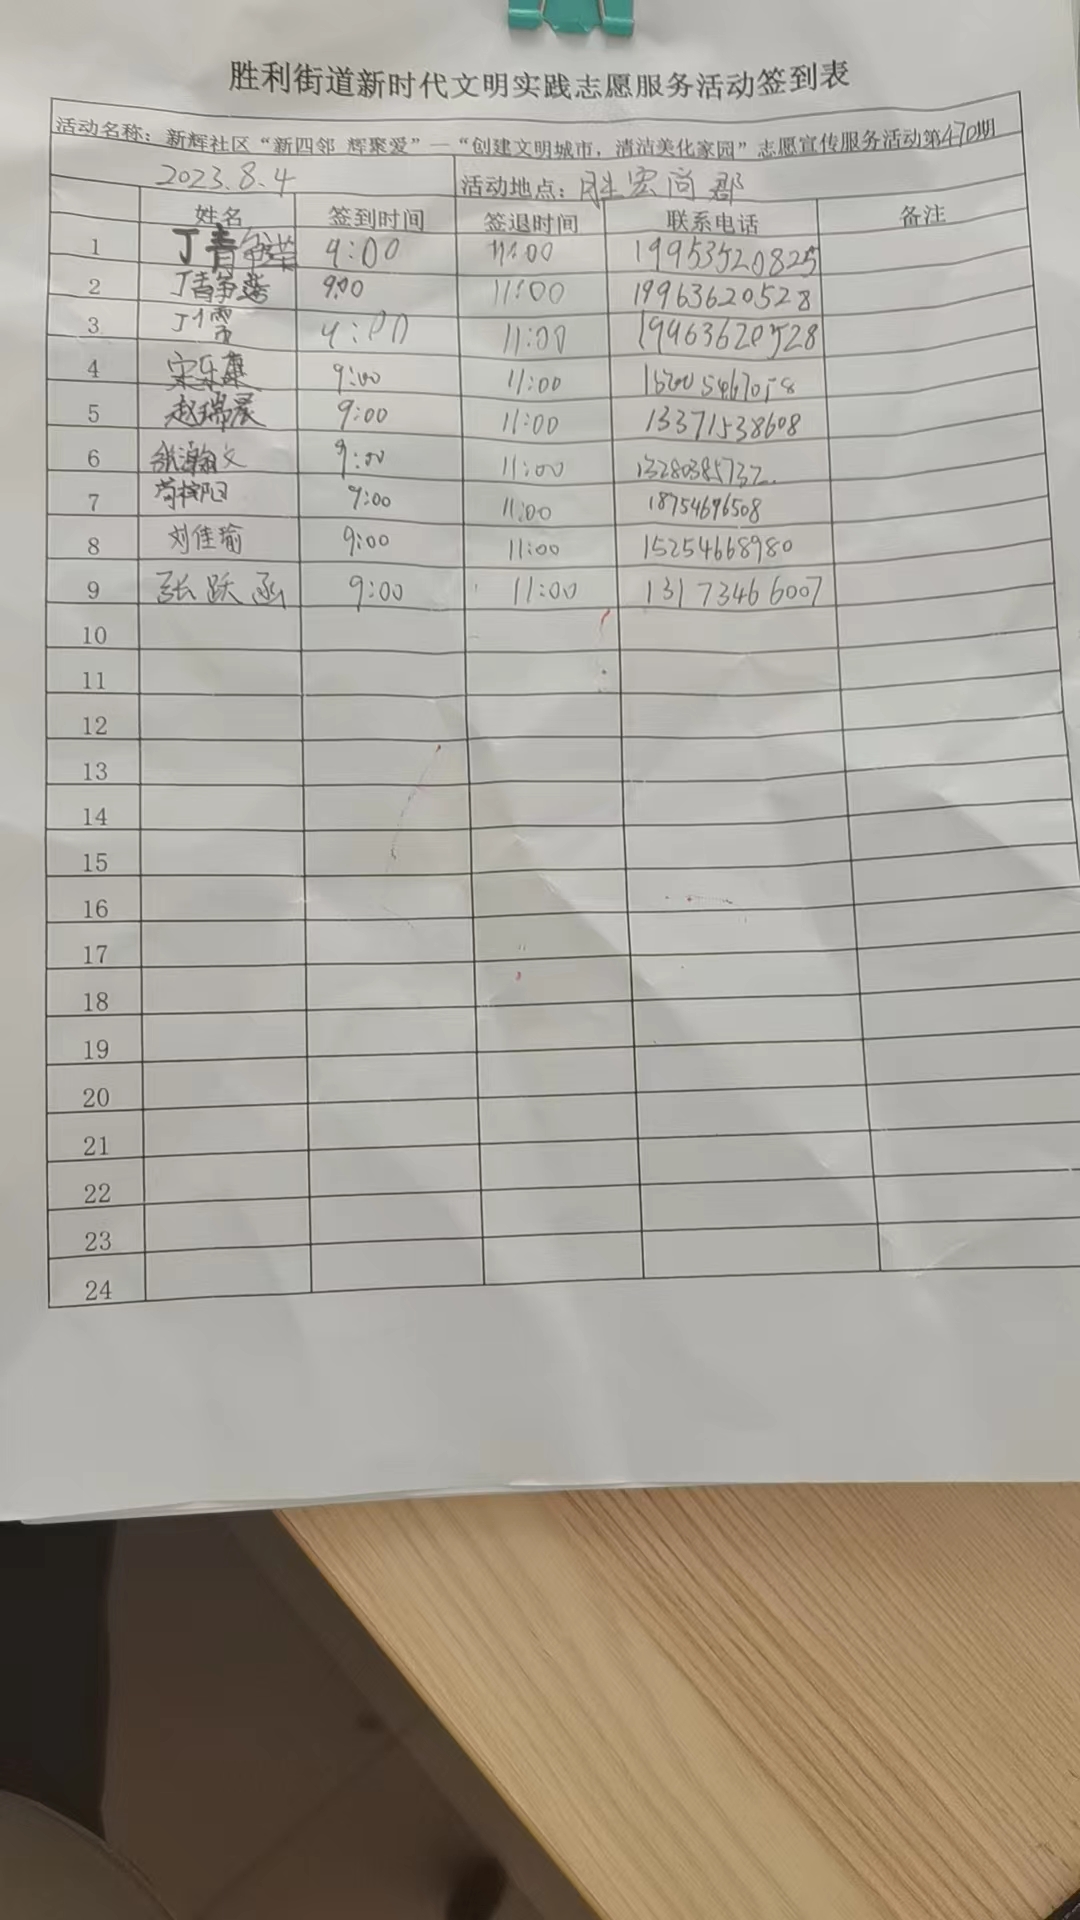 胜利街道新时代文明实践志愿服务活动签到表
活动名称：新辉社区“新四邻 辉聚爱”—“创建文明城市，清洁美化家园”志愿宣传服务活动第470期
2023.8.4 活动地点：胜宏尚郡
姓名 签到时间 签退时间 联系电话 备注
1 丁青筝 9:00 11:00 19953520825
2 丁青筝 9:00 11:00 19963620528
3 丁雪 9:00 11:00 19963620528
4 宋乐康 9:00 11:00
5 赵瑞晨 9:00 11:00 13371538608
6 张瀚文 9:00 11:00 13280385732
7 9:00 11:00 18754696508
8 刘佳瑜 9:00 11:00 15254668980
9 张跃函 9:00 11:00 13173466007
10
11
12
13
14
15
16
17
18
19
20
21
22
23
24